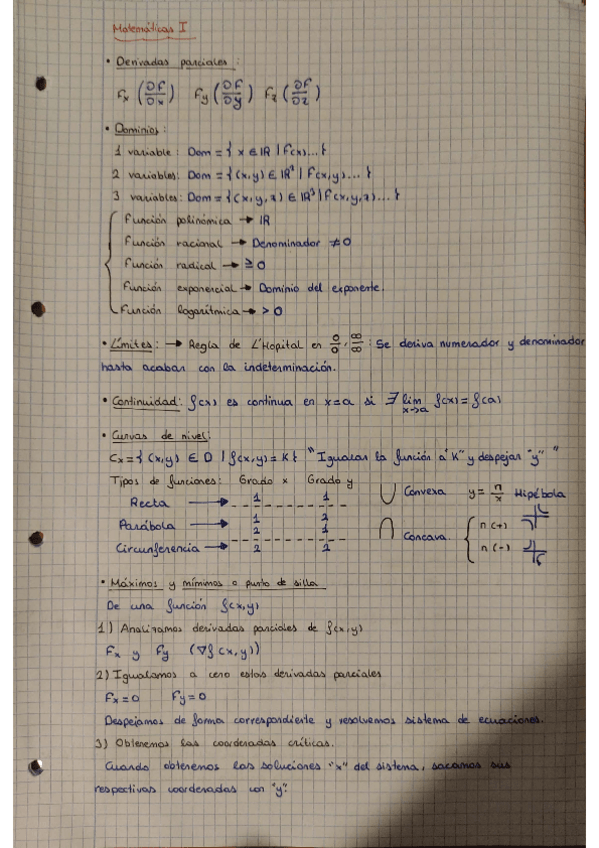 Matemáticas I
• Derivadas parciales:
Fx (∂F/∂x) Fy (∂F/∂y) Fz (∂F/∂z)
• Dominios:
1 variable: Dom = { x ∈ IR | F(x)... }
2 variables: Dom = { (x,y) ∈ IR² | F(x,y)... }
3 variables: Dom = { (x,y,z) ∈ IR³ | F(x,y,z)... }
Función polinómica → IR
Función racional → Denominador ≠ 0
Función radical → ≥ 0
Función exponencial → Dominio del exponente.
Función logarítmica → > 0
• Límites: → Regla de L'Hopital en 0/0, ∞/∞: Se deriva numerador y denominador
hasta acabar con la indeterminación.
• Continuidad: f(x) es continua en x=a si ∃ lim x→a f(x) = f(a)
• Curvas de nivel:
Cx = { (x,y) ∈ D | f(x,y) = K } "Igualar la función a "K" y despejar "y" "
Tipos de funciones: Grado x Grado y
Recta → 1 1
Parábola → 1 2
2 1
Circunferencia → 2 2
∪ Convexa y = n/x Hipébola
∩ Concava. { n (+)
n (-)
• Máximos y mínimos o punto de silla
De una función f(x,y)
1) Analizamos derivadas parciales de f(x,y)
Fx y Fy (∇f(x,y))
2) Igualamos a cero estas derivadas parciales
Fx = 0 Fy = 0
Despejamos de forma correspondiente y resolvemos sistema de ecuaciones.
3) Obtenemos las coordenadas críticas.
Cuando obtenemos las soluciones "x" del sistema, sacamos sus
respectivas coordenadas con "y".